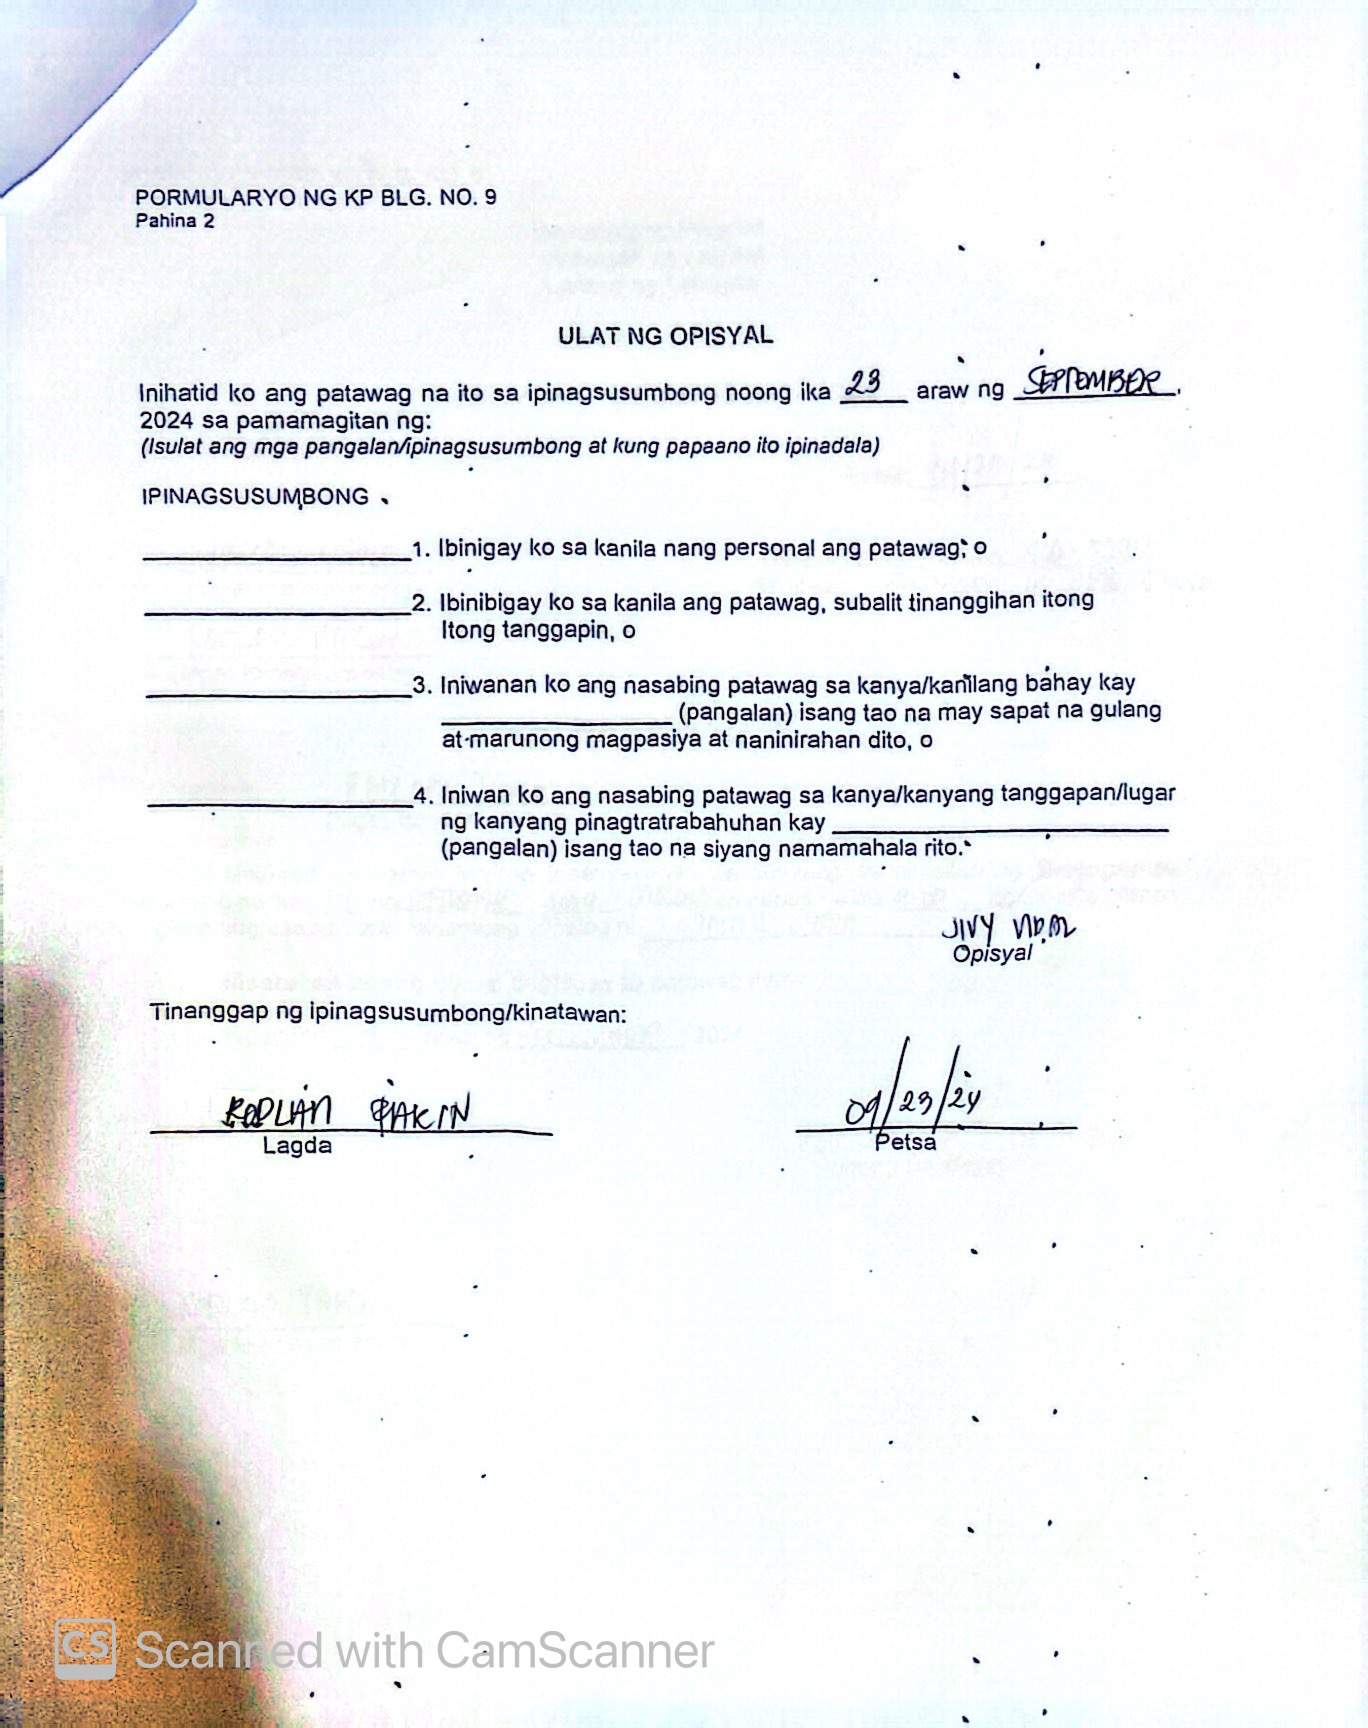 PORMULARYO NG KP BLG. NO. 9
Pahina 2
ULAT NG OPISYAL
Inihatid ko ang patawag na ito sa ipinagsusumbong noong ika 23 araw ng SEPTEMBER,
2024 sa pamamagitan ng:
(Isulat ang mga pangalan/ipinagsusumbong at kung papaano ito ipinadala)
IPINAGSUSUMBONG
1. Ibinigay ko sa kanila nang personal ang patawag; o
2. Ibinibigay ko sa kanila ang patawag, subalit tinanggihan itong
Itong tanggapin, o
3. Iniwanan ko ang nasabing patawag sa kanya/kanilang bahay kay
(pangalan) isang tao na may sapat na gulang
at marunong magpasiya at naninirahan dito, o
4. Iniwan ko ang nasabing patawag sa kanya/kanyang tanggapan/lugar
ng kanyang pinagtratrabahuhan kay
(pangalan) isang tao na siyang namamahala rito.
JIVY
Opisyal
Tinanggap ng ipinagsusumbong/kinatawan:
09/23/24
Lagda Petsa
CS Scanned with CamScanner